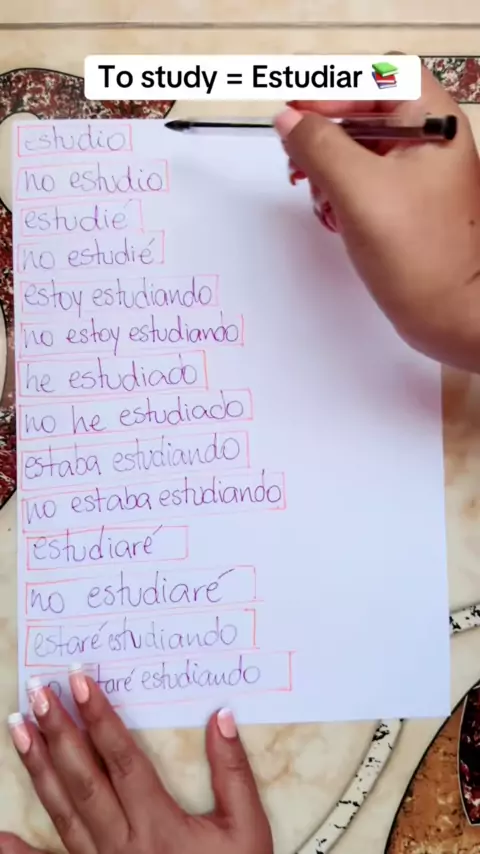 To study = Estudiar 📚
estudio
no estudio
estudié
no estudié
estoy estudiando
no estoy estudiando
he estudiado
no he estudiado
estaba estudiando
no estaba estudiando
estudiaré
no estudiaré
estaré estudiando
estudiando